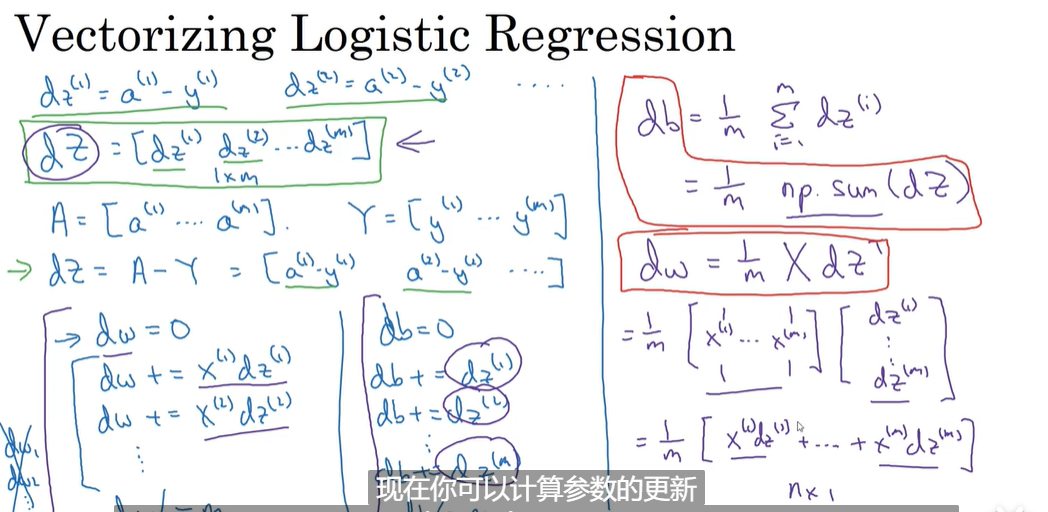 Vectorizing Logistic Regression
dz⁽¹⁾ = a⁽¹⁾ - y⁽¹⁾   dz⁽²⁾ = a⁽²⁾ - y⁽²⁾ ....
dZ = [dz⁽¹⁾ dz⁽²⁾ ... dz⁽ᵐ⁾] ←
1×m
A = [a⁽¹⁾ .... a⁽ᵐ⁾].   Y = [y⁽¹⁾ ... y⁽ᵐ⁾]
→ dZ = A - Y = [a⁽¹⁾-y⁽¹⁾   a⁽²⁾-y⁽²⁾ ....]
→ dw = 0
dw += x⁽¹⁾dz⁽¹⁾
dw += x⁽²⁾dz⁽²⁾
⋮
dw₁
dw₂
db = 0
db += dz⁽¹⁾
db += dz⁽²⁾
⋮
db += dz⁽ᵐ⁾
db = 1/m Σᵢ₌₁ᵐ dz⁽ⁱ⁾
= 1/m np.sum(dZ)
dw = 1/m X dZᵀ
= 1/m [x⁽¹⁾ ... x⁽ᵐ⁾] [dz⁽¹⁾ ⋮ dz⁽ᵐ⁾]
= 1/m [x⁽¹⁾dz⁽¹⁾ + .... + x⁽ᵐ⁾dz⁽ᵐ⁾]
n×1
现在你可以计算参数的更新